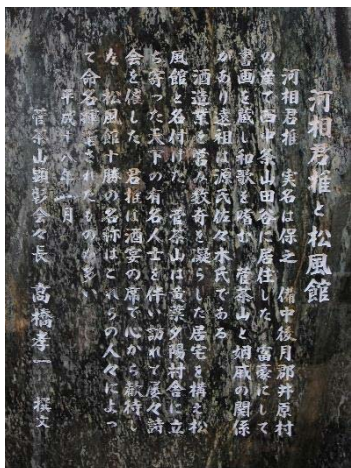 河相君推と松風館
河相君推 実名は保之 備中後月郡井原村
の産で西中条山田谷に居住した富豪にして
書画を蔵し和歌を嗜む 菅茶山と姻戚の関係
があり遠祖は源氏佐々木氏である
酒造業を営み数奇を凝らした居宅を構え松
風館と名付けた 菅茶山は黄葉夕陽村舎に立
ち寄った天下の有名人士を伴い訪れて屡々詩
会を催した 君推は酒宴の席で心から歓待し
た 松風館十勝の名称はこれらの人々によっ
て命名揮毫されたものが多い
平成十八年一月
菅茶山顕彰会々長 高橋孝一 撰文